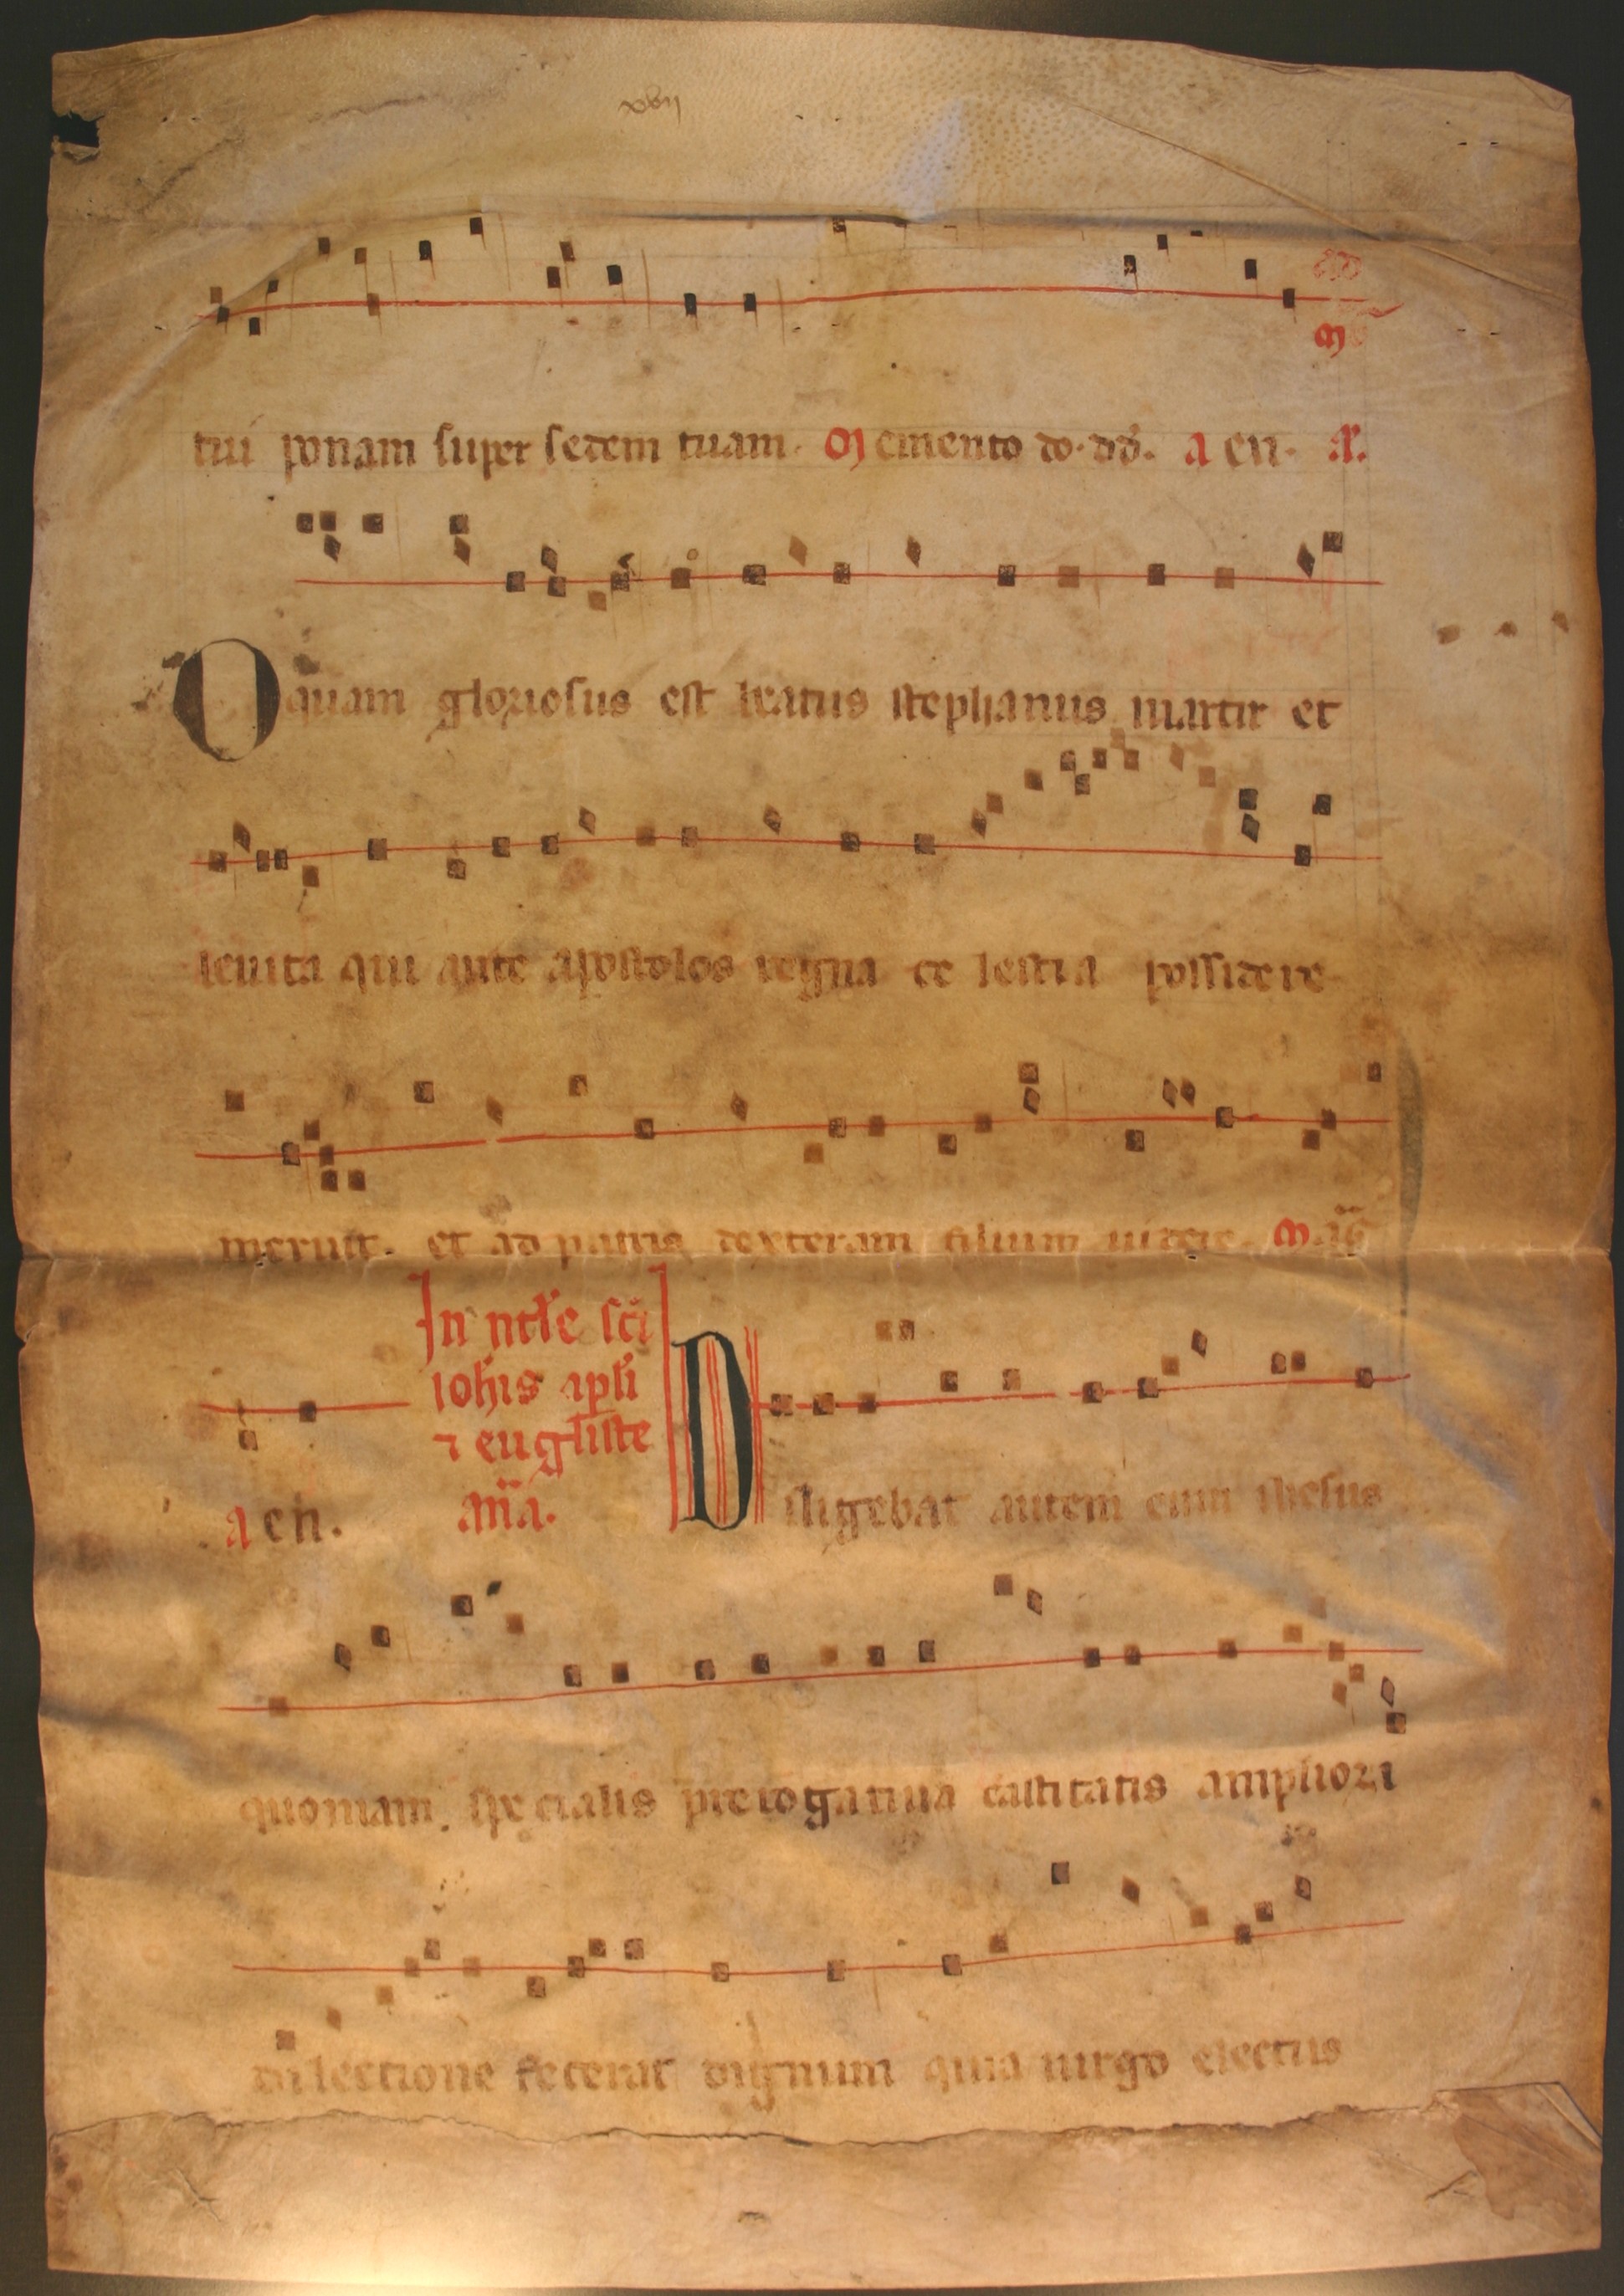 xxvij
tui ponam super sedem tuam. Memento do. dd. a en. A.
O quam gloriosus est beatus stephanus martir et
leuita qui ante apostolos regna ce lestia possidere
meruit. et ad patris dexteram filium uidere. mag
In nele sci
Iohis apli
⁊ eugliste
a en. ana. Diligebat autem eum ihesus
quoniam spe cialis prerogatiua castitatis ampliori
di lectione fecerat dignum quia uirgo electus